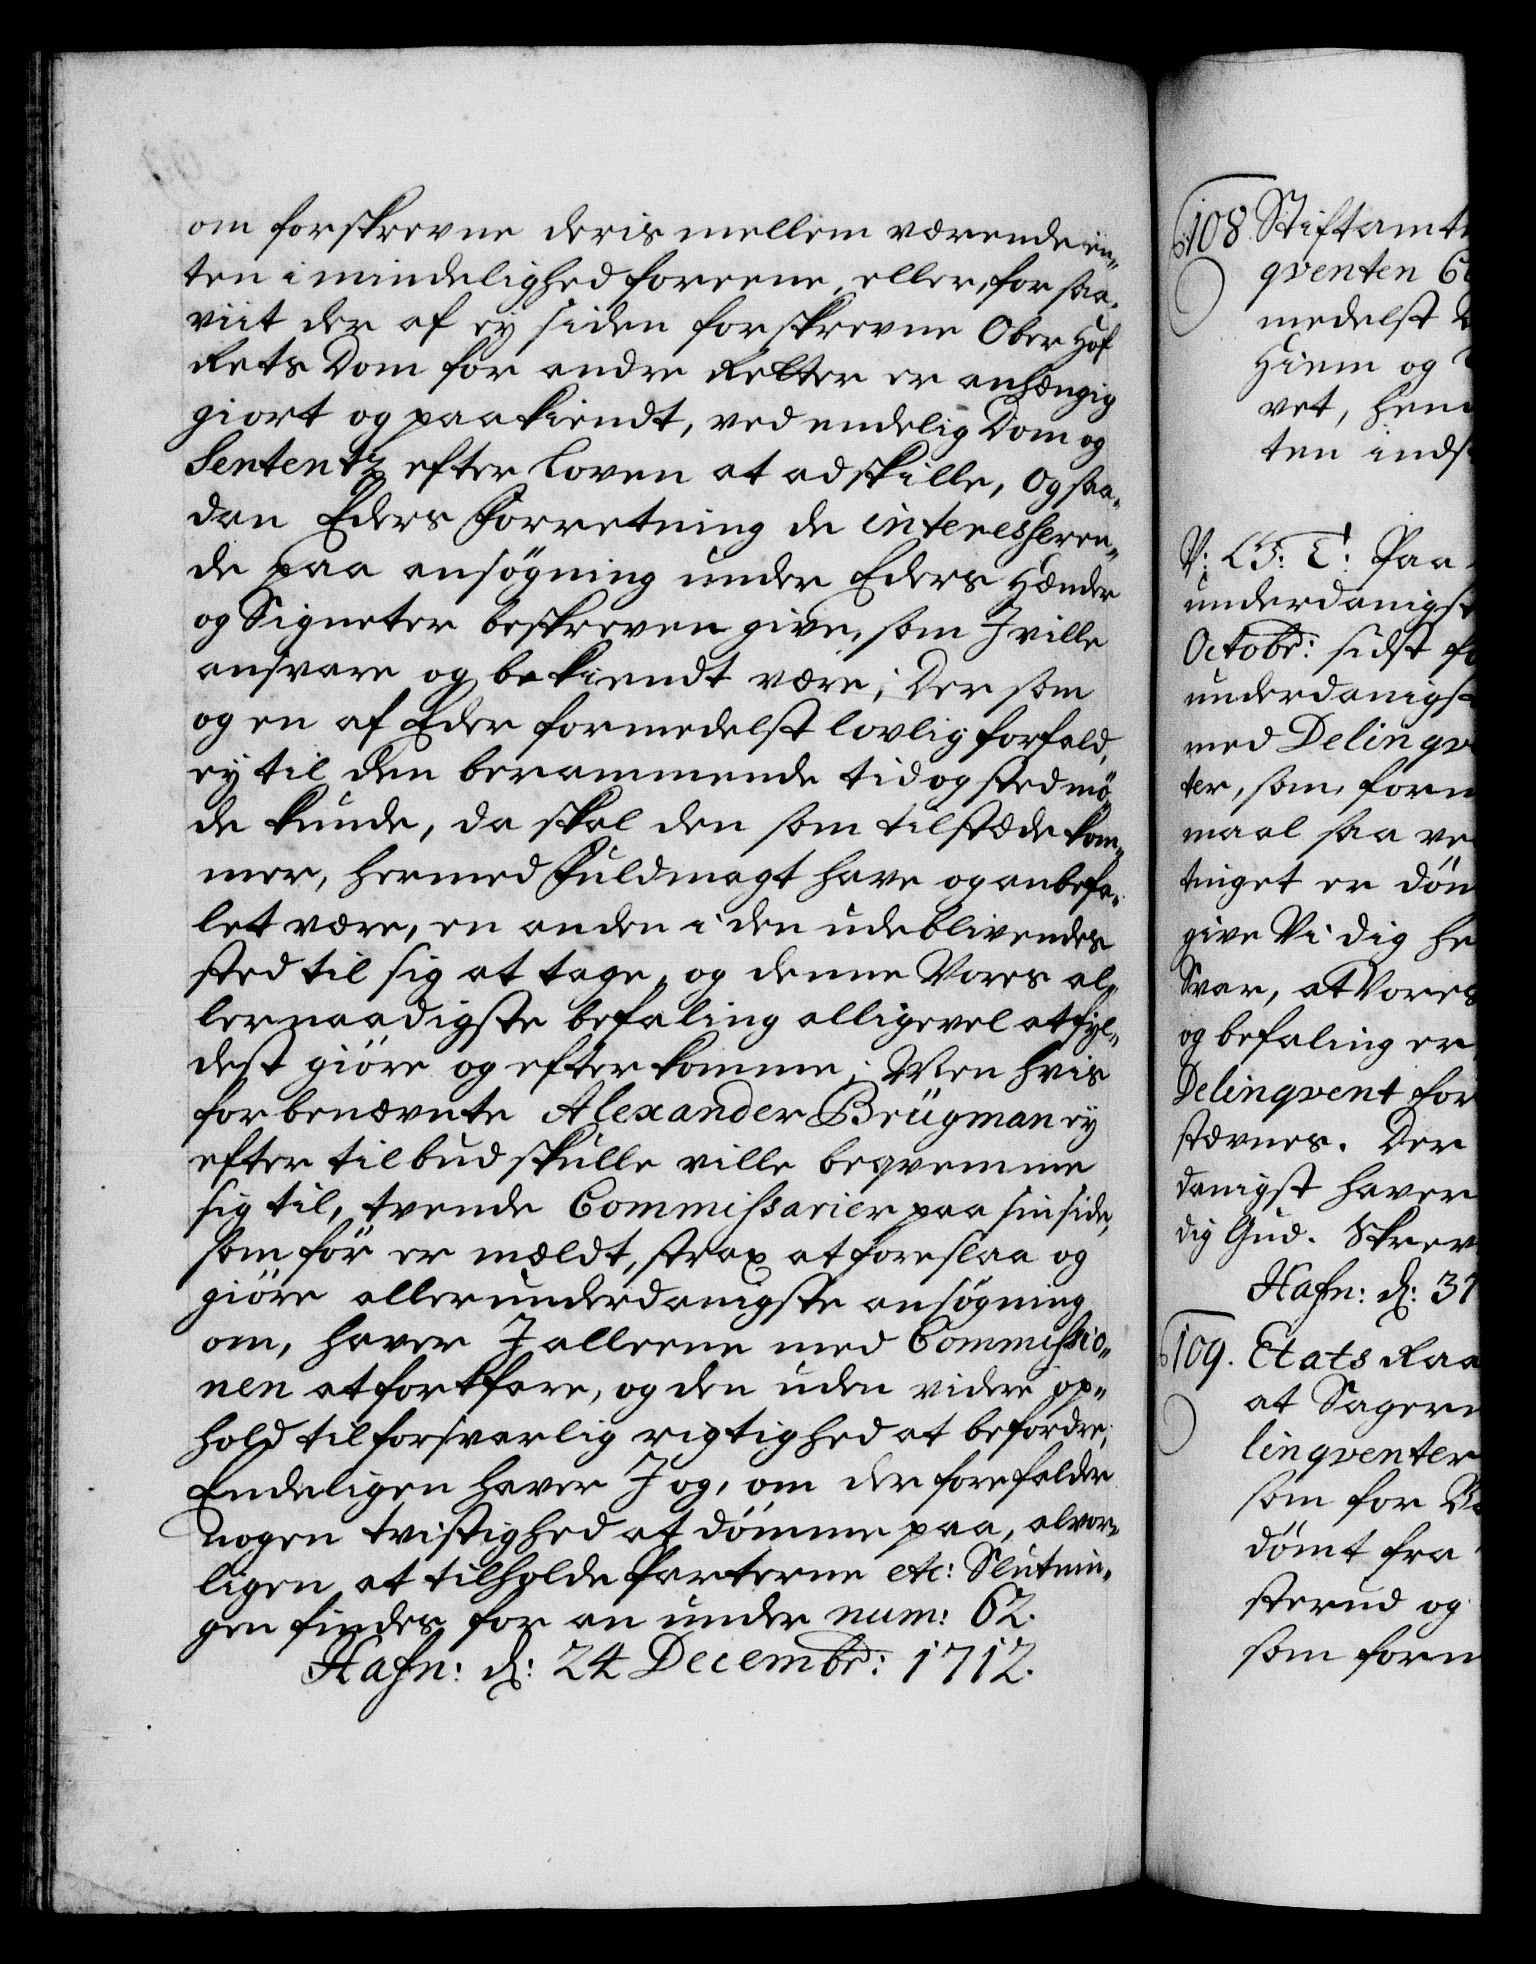 om forskrevne deris mellem værende en-
ten i mindelighed foreene, eller, for saa-
viit der af ey siden forskrevne Ober Hof
Rets Dom for andre Retter er anhængig
giort og paakiendt, ved endelig Dom og
Sententz efter Loven at adskille, og saa-
dan Eders Forretning de interesseren-
de paa ansøgning under Eders Hænder
og Signeter beskreven give, som I ville
ansvare og bekiendt være; Der som
og en af Eder formedelst lovlig forfald,
ey til den berammende tid og sted mö-
de kunde, da skal den som tilstæde kom-
mer, hermed Fuldmagt have og anbefa-
let være, en anden i den udeblivendes
sted til sig at tage, og denne Vores al-
lernaadigste befaling alligevel at fyl-
dest giöre og efterkomme; Men hvis
forbenævnte Alexander Brügman ey
efter tilbud skulle ville beqvemme
sig til, tvende Commissarier paa sin side,
som för er mældt, strax at foreslaa og
giöre allerunderdanigste ansøgning
om, haver I alleene med Commissio-
nen at fortfare, og den uden videre op-
hold til forsvarlig rigtighed at befordre;
Endeligen haver I og, om der forefalder
nogen tvistighed at dömme paa, alvor-
ligen at tilholde Parterne etc: Slutnin-
gen findes for an under num: 62.
Hafn: d: 24 Decembr: 1712.
108. Stiftamt
qventen
medelst
Hiem og
vet, hen
ten inds
V: G: T: Paa
underdanigst
Octobr: sidst
underdanigst
med Delinqv
ter, som, form
maal saa ve
tinget er döm
give Vi dig he
Svar, at Vores
og befaling er
Delinqvent for
stævnes. Der
danigst haver
dig Gud. Skrev
Hafn: d: 31
109. Etats Raa
at Sagern
linqventer
som for
dömt fra
sterud og
som form